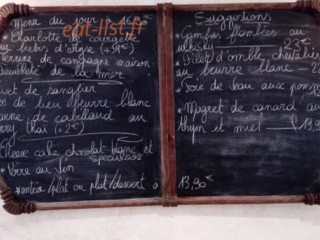 Menu du jour
eat-list.fr
* Charlotte de courgette
au brebis d'
Terrine de campagne maison
Feuilleté de la mer
de sanglier
de lieu beurre blanc
de cabillaud au
(+2€)
Cheese cake chocolat blanc et
spéculoos
* Verre au Vin
entrée/plat ou plat/dessert à 13,90€
Suggestions
* Gambas flambées au
whisky 23€
* Filet d'omble chevalier
au beurre blanc
* Foie de veau aux
* Magret de canard au
thym et miel